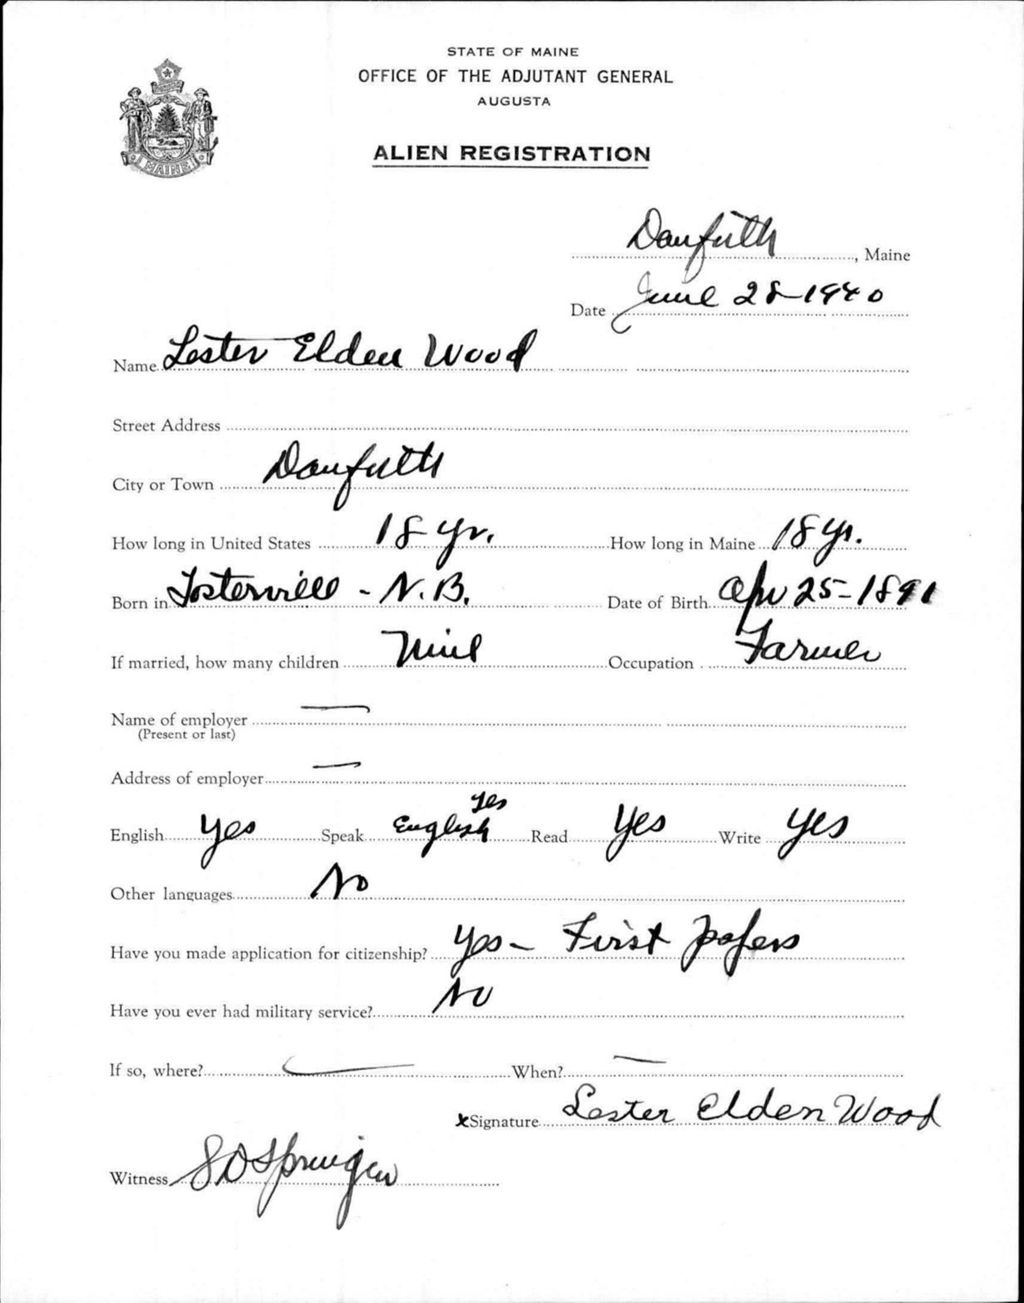 STATE OF MAINE
OFFICE OF THE ADJUTANT GENERAL
AUGUSTA
ALIEN REGISTRATION
MAINE
Danforth, Maine
Date June 28-1940
Name Lester Elden Wood
Street Address
City or Town Danforth
How long in United States 18 yr. How long in Maine 18 yr.
Born in Fosterville - N.B. Date of Birth Apr 25-1891
If married, how many children Occupation Farmer
Name of employer —
(Present or last)
Address of employer —
Yes
English Yes Speak English Read Yes Write Yes
Other languages No
Have you made application for citizenship? Yes - First papers
Have you ever had military service? No
If so, where? — When? —
x Signature Lester Elden Wood
Witness